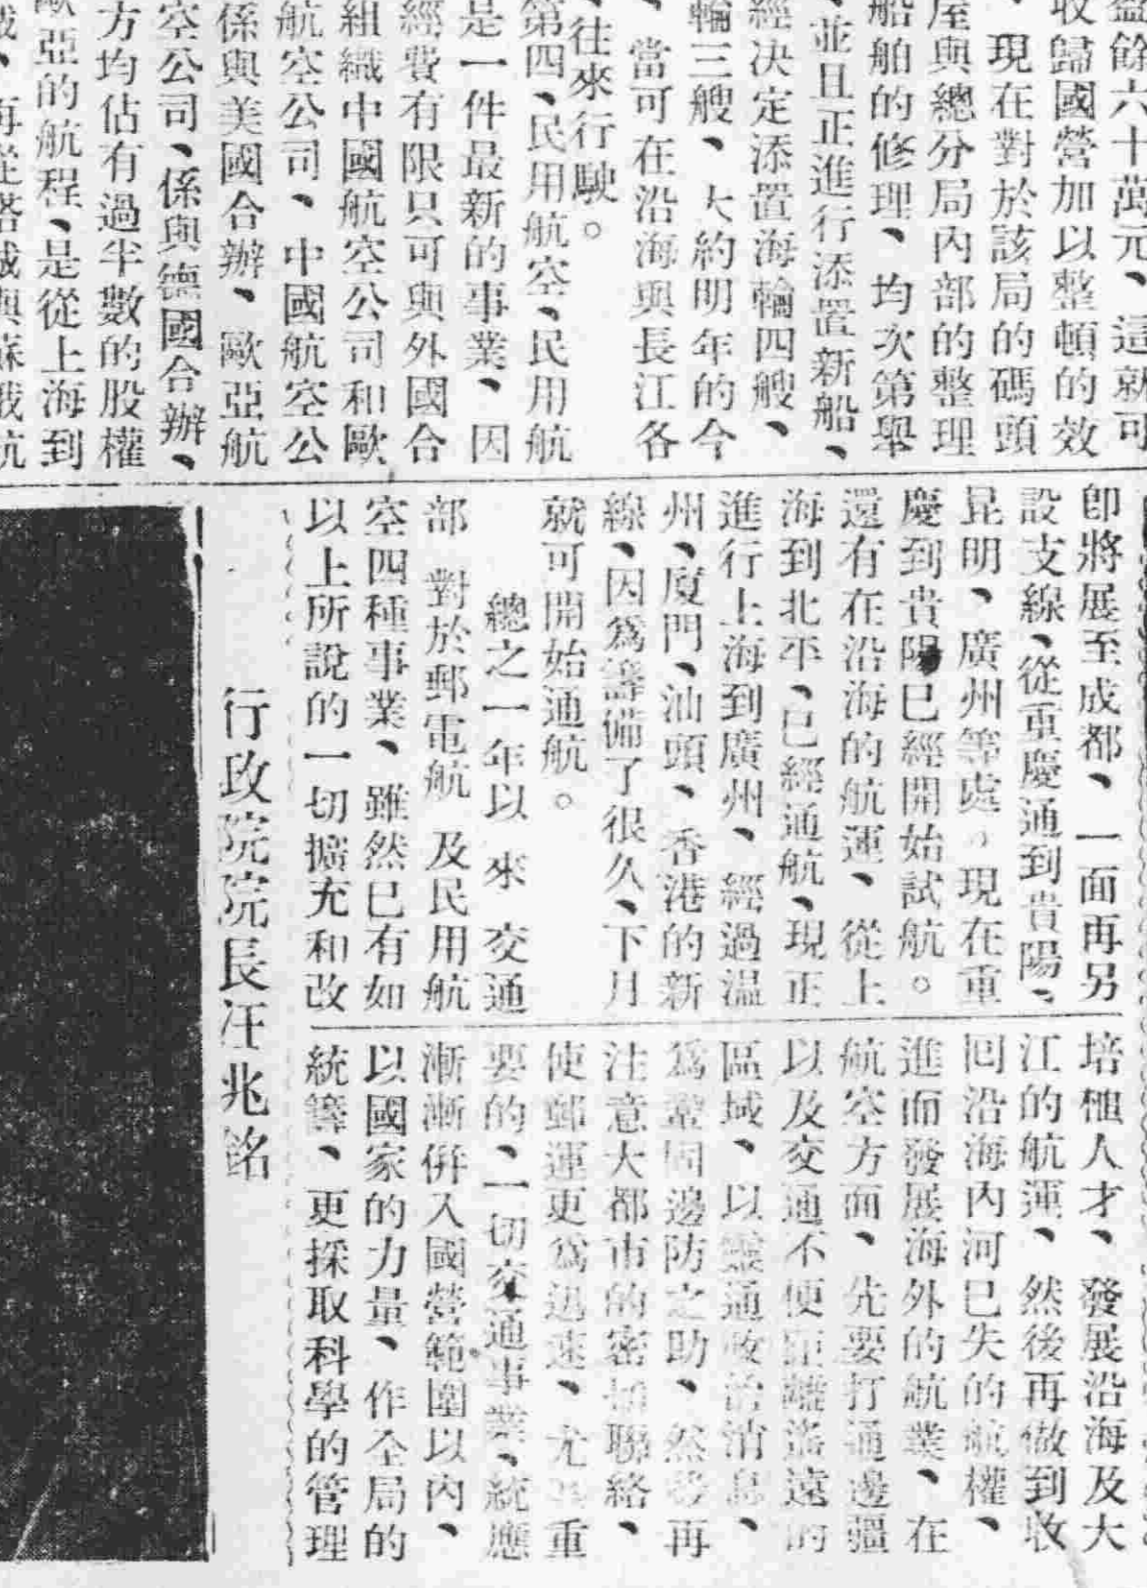 盈餘六十萬元、這就可
收歸國營加以整頓的效
、現在對於該局的碼頭
屋與總分局內部的整理
船舶的修理、均次第舉
、並且正進行添置新船、
經决定添置海輪四艘、
輪三艘、大約明年的今
、當可在沿海與長江各
、往來行駛。
第四、民用航空、民用航
是一件最新的事業、因
經費有限只可與外國合
組織中國航空公司和歐
航空公司、中國航空公
係與美國合辦、歐亞航
空公司、係與德國合辦、
方均佔有過半數的股權
歐亞的航程、是從上海到
再從塔城與蘇俄航
卽將展至成都、一面再另
設支線、從重慶通到貴陽、
昆明、廣州等處。現在重
慶到貴陽已經開始試航。
還有在沿海的航運、從上
海到北平、已經通航、現正
進行上海到廣州、經過温
州、廈門、汕頭、香港的新
線、因爲籌備了很久、下月
就可開始通航。
總之一年以來交通
部對於郵電航及民用航
空四種事業、雖然已有如
以上所說的一切擴充和改
培植人才、發展沿海及大
江的航運、然後再做到收
回沿海內河已失的航權、
進而發展海外的航業、在
航空方面、先要打通邊疆
以及交通不便距離遙遠的
區域、以靈通政治消息、
爲鞏固邊防之助、然後再
注意大都市的密切聯絡、
使郵運更爲迅速、尤其重
要的、一切交通事業、統應
漸漸倂入國營範圍以內、
以國家的力量、作全局的
統籌、更採取科學的管理
行政院院長汪兆銘